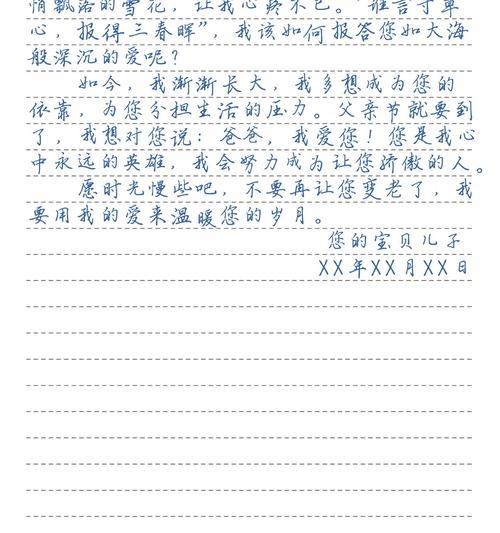 悄飘落的雪花，让我心疼不已。“谁言寸草
心，报得三春晖”，我该如何报答您如大海
般深沉的爱呢？
如今，我渐渐长大，我多想成为您的
依靠，为您分担生活的压力。父亲节就要到
了，我想对您说：爸爸，我爱您！您是我心
中永远的英雄，我会努力成为让您骄傲的人。
愿时光慢些吧，不要再让您变老了，我
要用我的爱来温暖您的岁月。
您的宝贝儿子
XX年XX月XX日